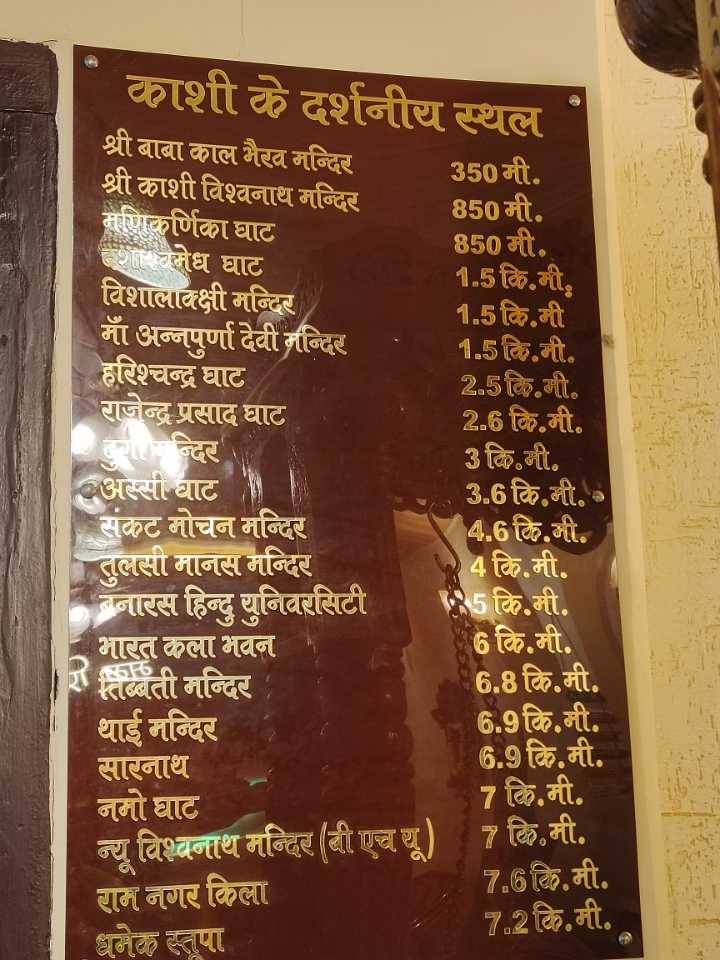 काशी के दर्शनीय स्थल
श्री बाबा काल भैरव मन्दिर 350 मी.
श्री काशी विश्वनाथ मन्दिर 850 मी.
मणिकर्णिका घाट 850 मी.
दशाश्वमेध घाट 1.5 कि.मी.
विशालाक्क्षी मन्दिर 1.5 कि.मी
माँ अन्नपुर्णा देवी मन्दिर 1.5 कि.मी.
हरिश्चन्द्र घाट 2.5 कि.मी.
राजेन्द्र प्रसाद घाट 2.6 कि.मी.
दुर्गा मन्दिर 3 कि.मी.
अस्सी घाट 3.6 कि.मी.
संकट मोचन मन्दिर 4.6 कि.मी.
तुलसी मानस मन्दिर 4 कि.मी.
बनारस हिन्दु युनिवरसिटी 5 कि.मी.
भारत कला भवन 6 कि.मी.
तिब्बती मन्दिर 6.8 कि.मी.
थाई मन्दिर 6.9 कि.मी.
सारनाथ 6.9 कि.मी.
नमो घाट 7 कि.मी.
न्यू विश्वनाथ मन्दिर (बी एच यू) 7 कि.मी.
राम नगर किला 7.6 कि.मी.
धमेक स्तूपा 7.2 कि.मी.